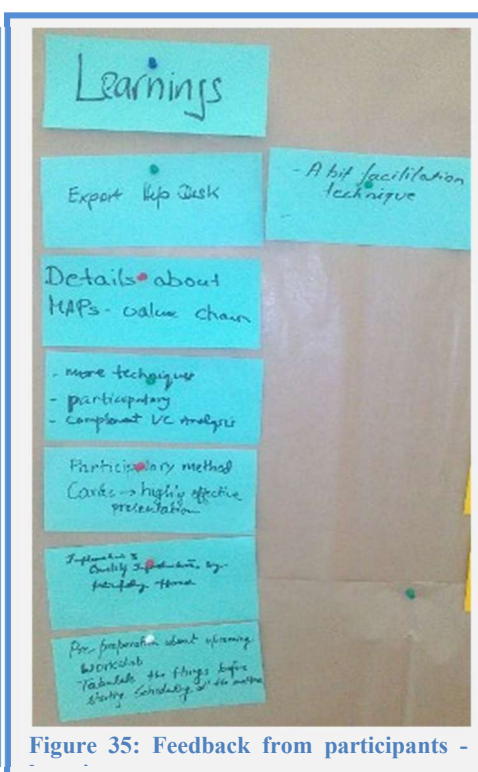 Learnings
Expert Help Desk
- A bit facilitation
technique
Details about
MAPs - value chain
- more techniques
- participatory
- component VC Analysis
Participatory method
Cards → highly effective
presentation
Quality
Pre-preparation about upcoming
workshop
Tabulate the things before
starting Scheduling
Figure 35: Feedback from participants -